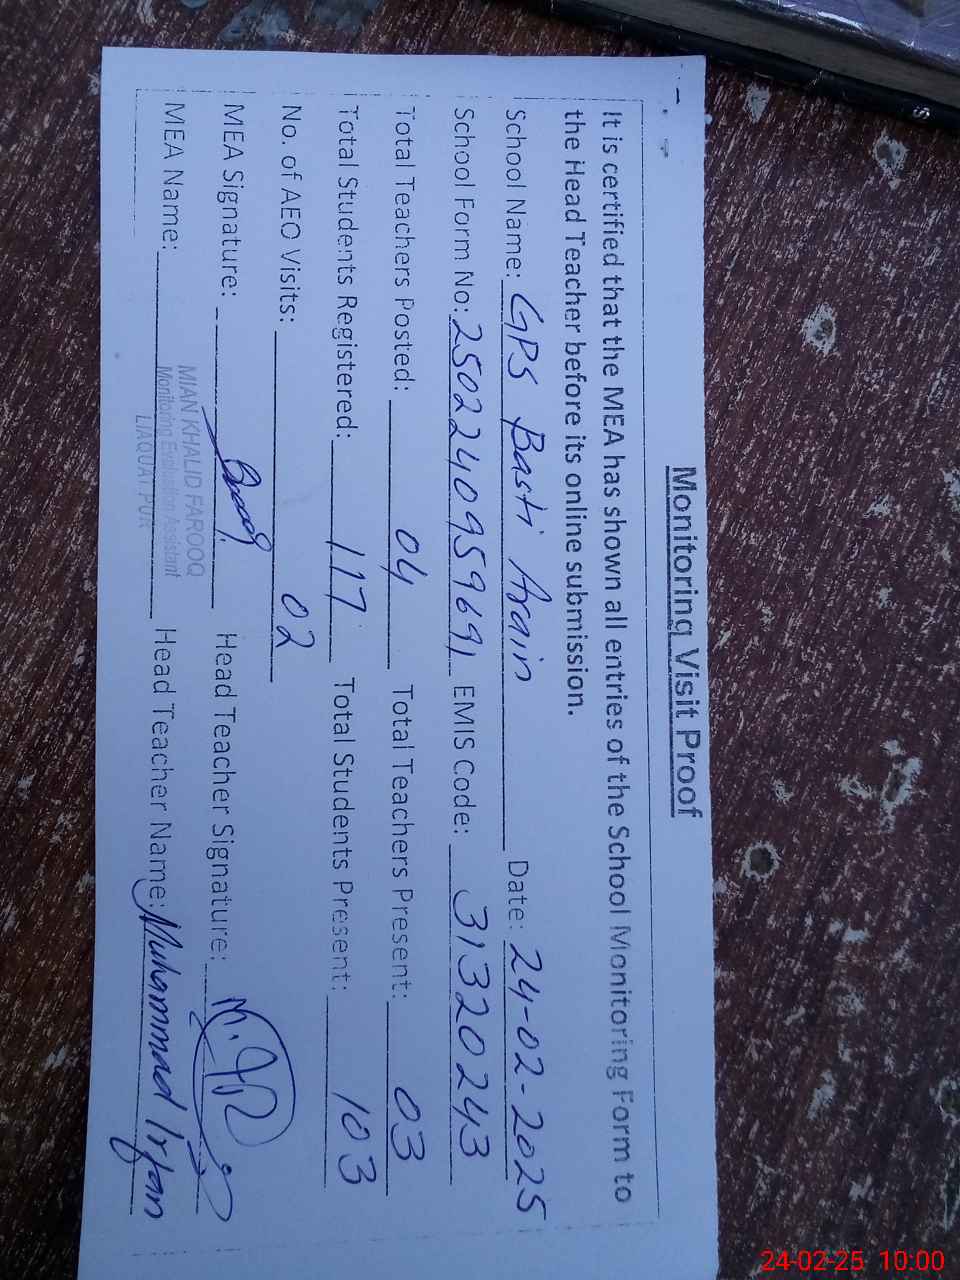 Monitoring Visit Proof
It is certified that the MEA has shown all entries of the School Monitoring Form to
the Head Teacher before its online submission.
School Name: GPS Basti Arain Date: 24-02-2025
School Form No: 2502240959691 EMIS Code: 31320243
Total Teachers Posted: 04 Total Teachers Present: 03
Total Students Registered: 117 Total Students Present: 103
No. of AEO Visits: 02
MEA Signature: Head Teacher Signature:
MEA Name: MIAN KHALID FAROOQ Head Teacher Name: Muhammad Irfan
Monitoring Evaluation Assistant
LIAQUAT PUR
24-02-25 10:00